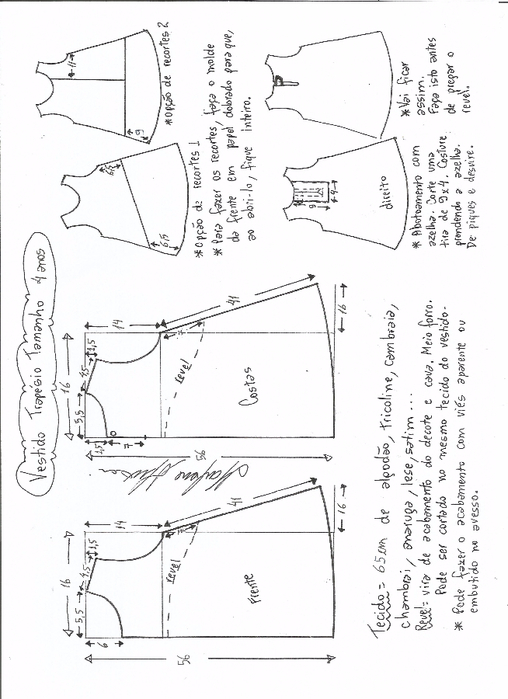 Vestido Trapézio Tamanho 4 anos
16
5,5
4,5
1,5
14
6
41
revel
Frente
56
16
16
5,5
4,5
1,5
14
1,5
7
41
revel
Costas
56
16
11
6
*Opção de recortes 2
6,5
*Opção de recortes 1
*Para fazer os recortes, faça o molde
da frente em papel dobrado para que,
ao abri-lo, fique inteiro.
*Vai ficar
assim.
Faça isto antes
de pregar o
revel.
9
4
direito
*Abotoamento com
azelha. Corte uma
tira de 9x4. Costure
prendendo a azelha.
De piques e desvire.
Tecido = 65cm de algodão, tricoline, cambraia,
chambrai, anarruga, lese, setim ...
Revel = vira de acabamento do decote e cava. Meio forro.
Pode ser cortado no mesmo tecido do vestido.
* Pode fazer o acabamento com viés aparente ou
embutido no avesso.